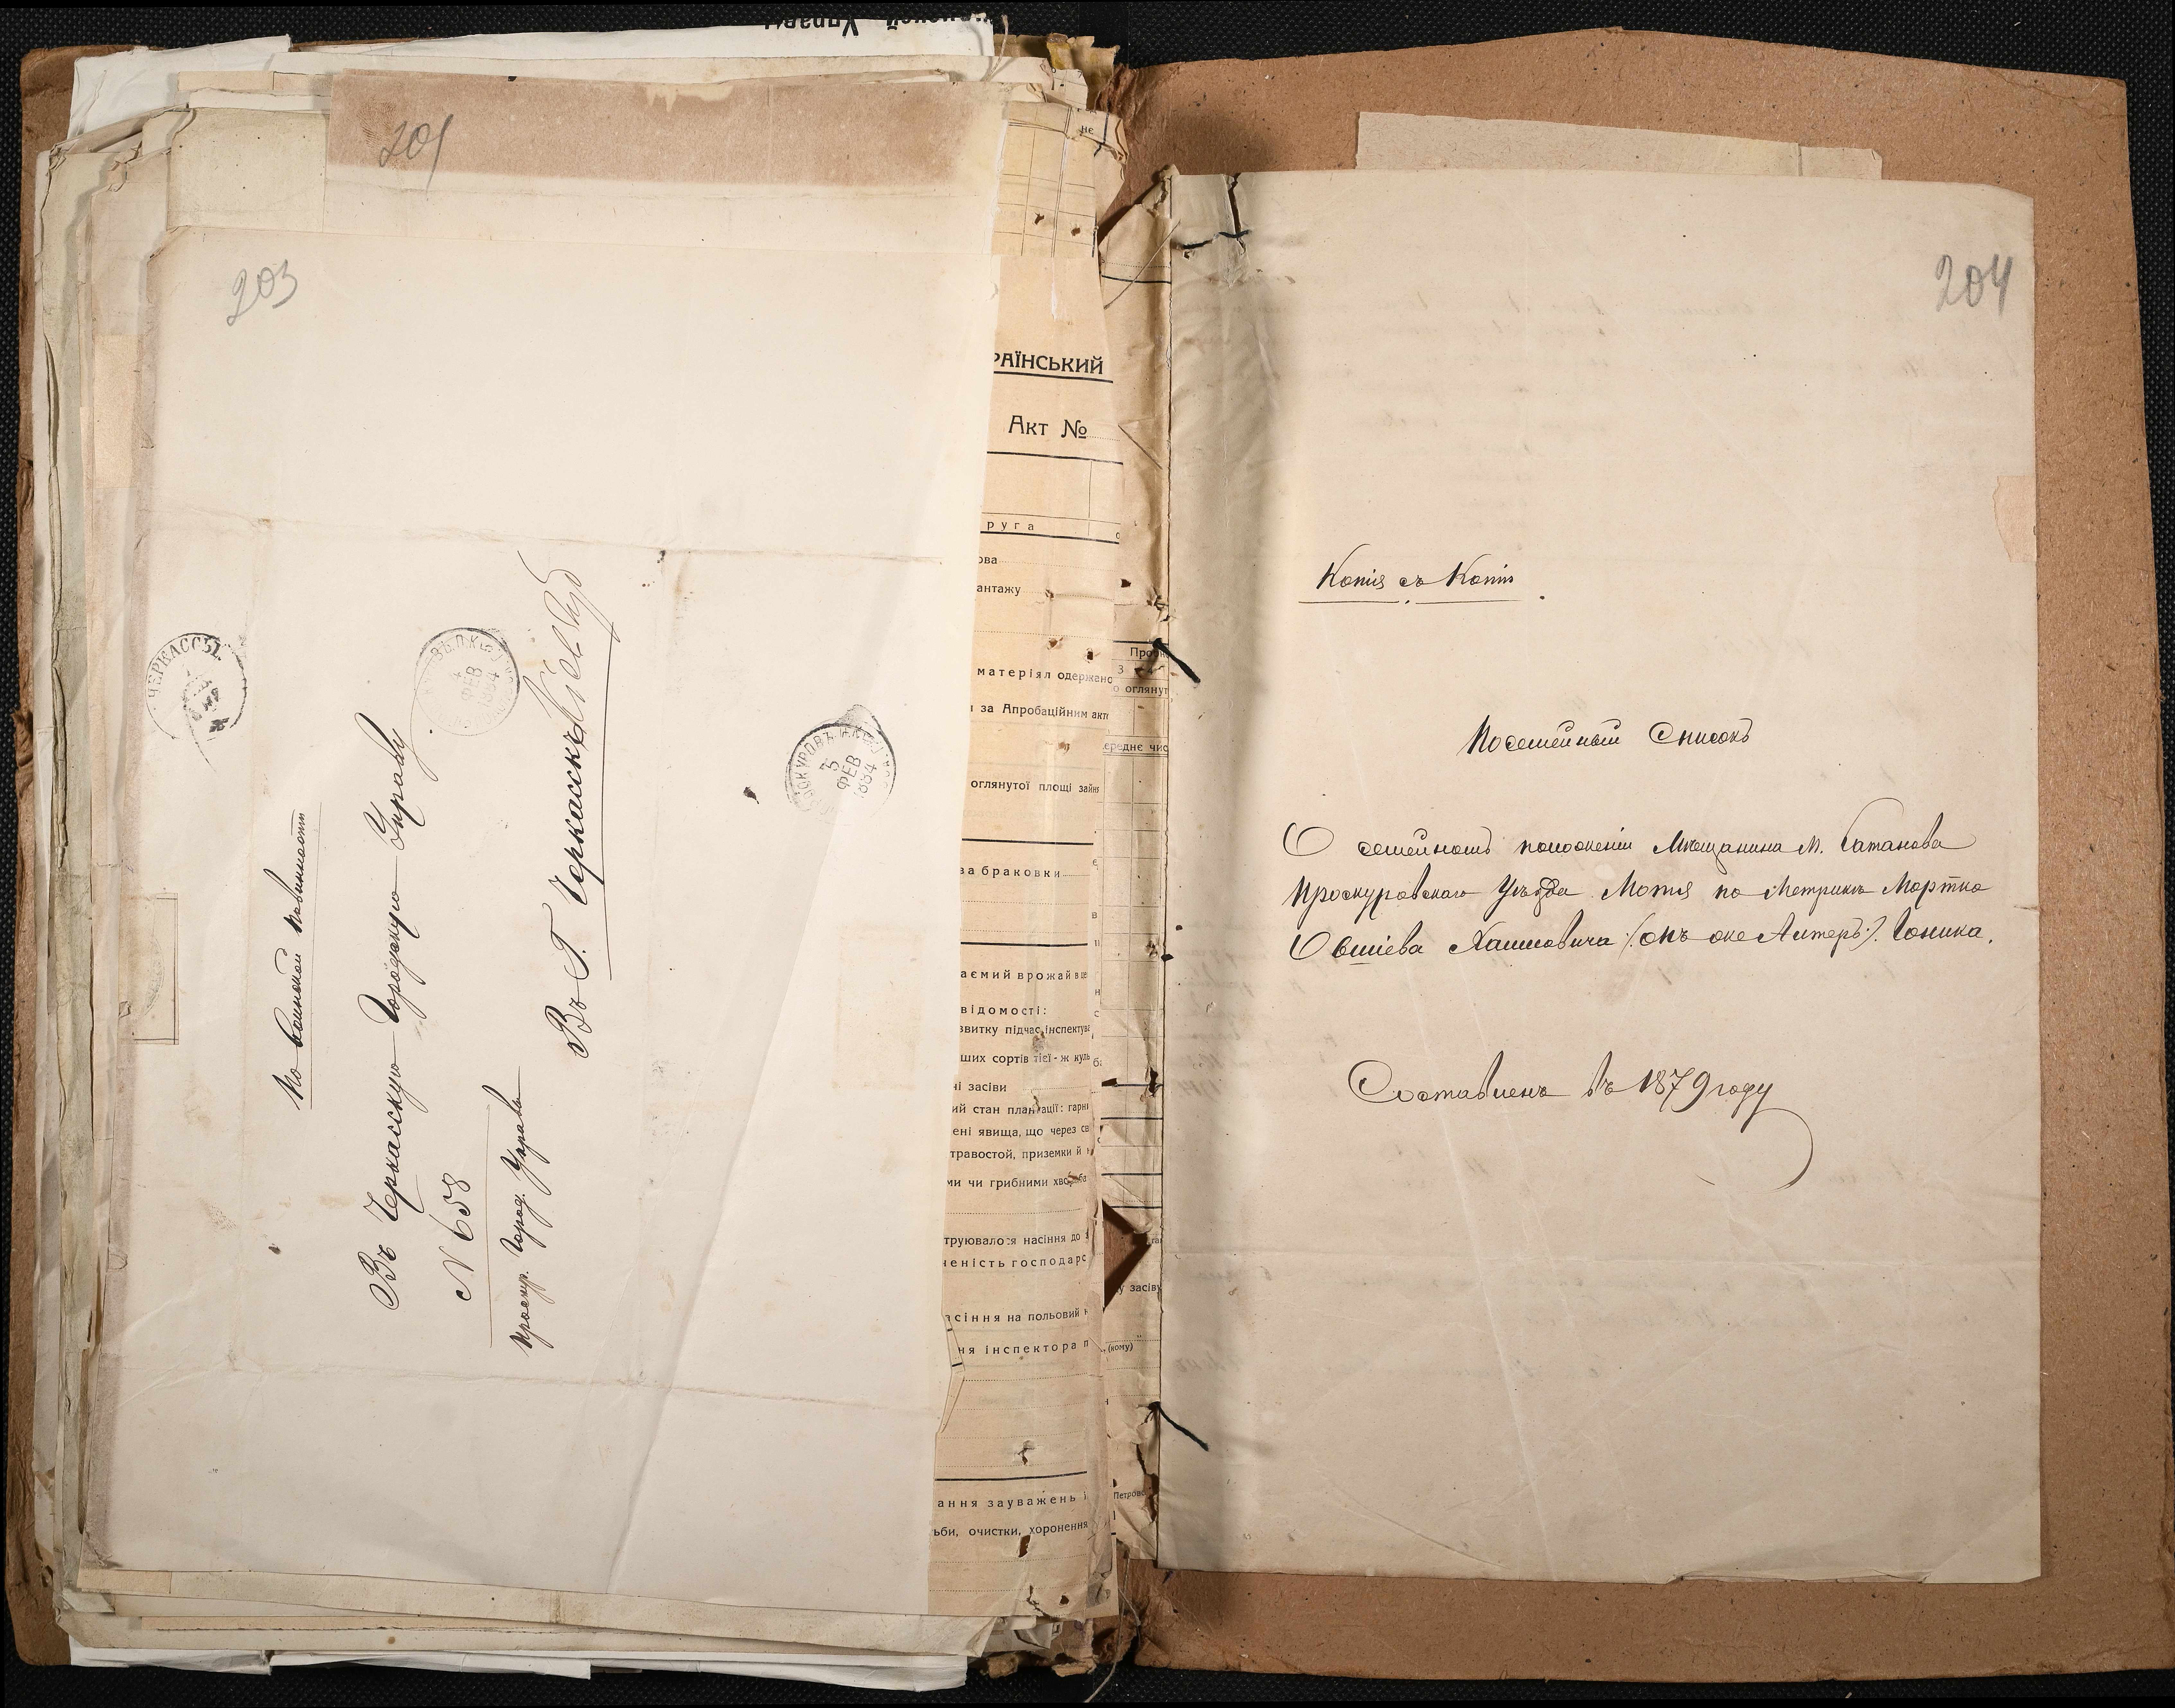 201
203
По воинской повинности
Въ Черкасскую Городскую Управу
N 658
Проскур. Город. Управа
Въ Г. Черкасскъ Кіев Губ
ЧЕРКАССЫ
4 ФЕВ 1884
5 ФЕВ 1884
РАЇНСЬКИЙ
Акт №
руга
ова
антажу
матеріял одержано
за Апробаційним акт
оглянутої площі зайн
за браковки
аємий врожай в це
відомості:
звитку підчас інспектува
ших сортів тієї-ж куль
ні засіви
ий стан плантації: гарн
ені явища, що через св
травостой, приземки й
ми чи грибними хвороба
труювалося насіння до
ченість господарс
асіння на польовий
ня інспектора п
(кому)
ання зауважень і
ьби, очистки, хоронення
204
Копія съ Копіи
Посемейный Списокъ
О семейномъ положеніи Мѣщанина М. Сатанова
Проскуровскаго Уѣзда Мотя по Метрикѣ Мортко
Овшіева Хаимовича /:онъ же Алтеръ:/. Гоника.
Составленъ въ 1879 году